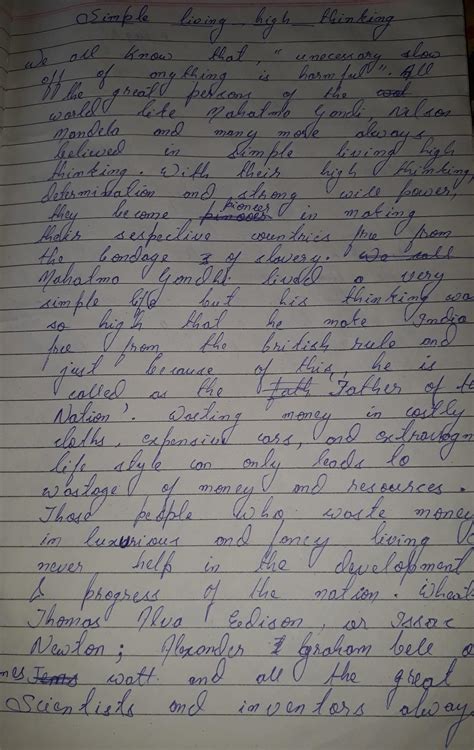 Simple living high thinking
We all know that, "unecessary show
off of anything is harmful". All
the great persons of the
world like Mahatma Gandi Nelson
Mandela and many more always
believed in simple living high
thinking. With their high thinking,
determination and strong will power,
they become pioneer in making
their respective countries free from
the bondage of slavery.
Mahatma Gandhi lived a very
simple life but his thinking was
so high that he make India
free from the british rule and
just because of this, he is
called as the 'Father of t
Nation'. Wasting money in costly
cloths, expensive cars, and extravagn
life style can only leads to
wastage of money and resources.
Those people who waste money
in luxurious and fancy living
never help in the development
& progress of the nation. Wheat
Thomas Alva Edison, or Issac
Newton; Alexander graham bell o
mes watt and all the great
Scientists and inventors alway